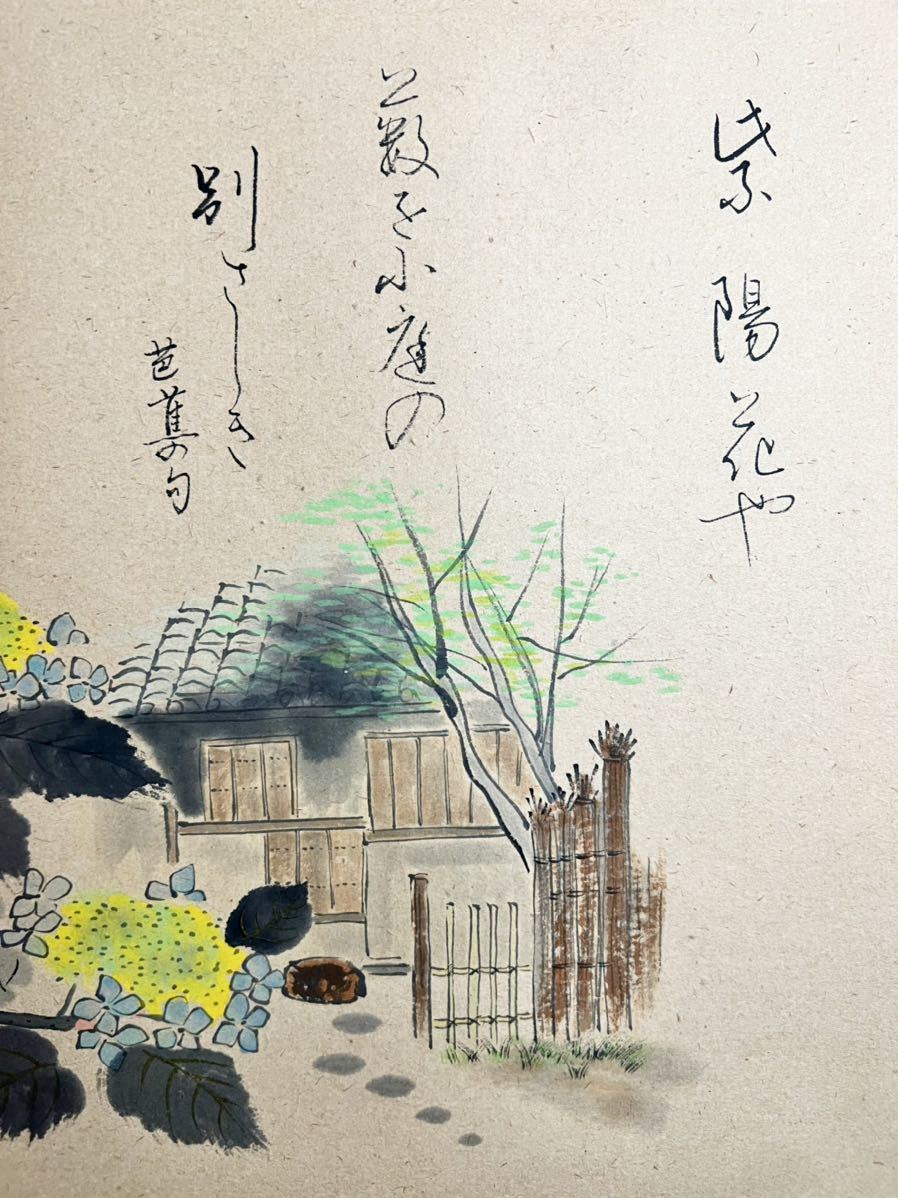 紫陽花や
薮を小庭の
別さしき
芭蕉の句